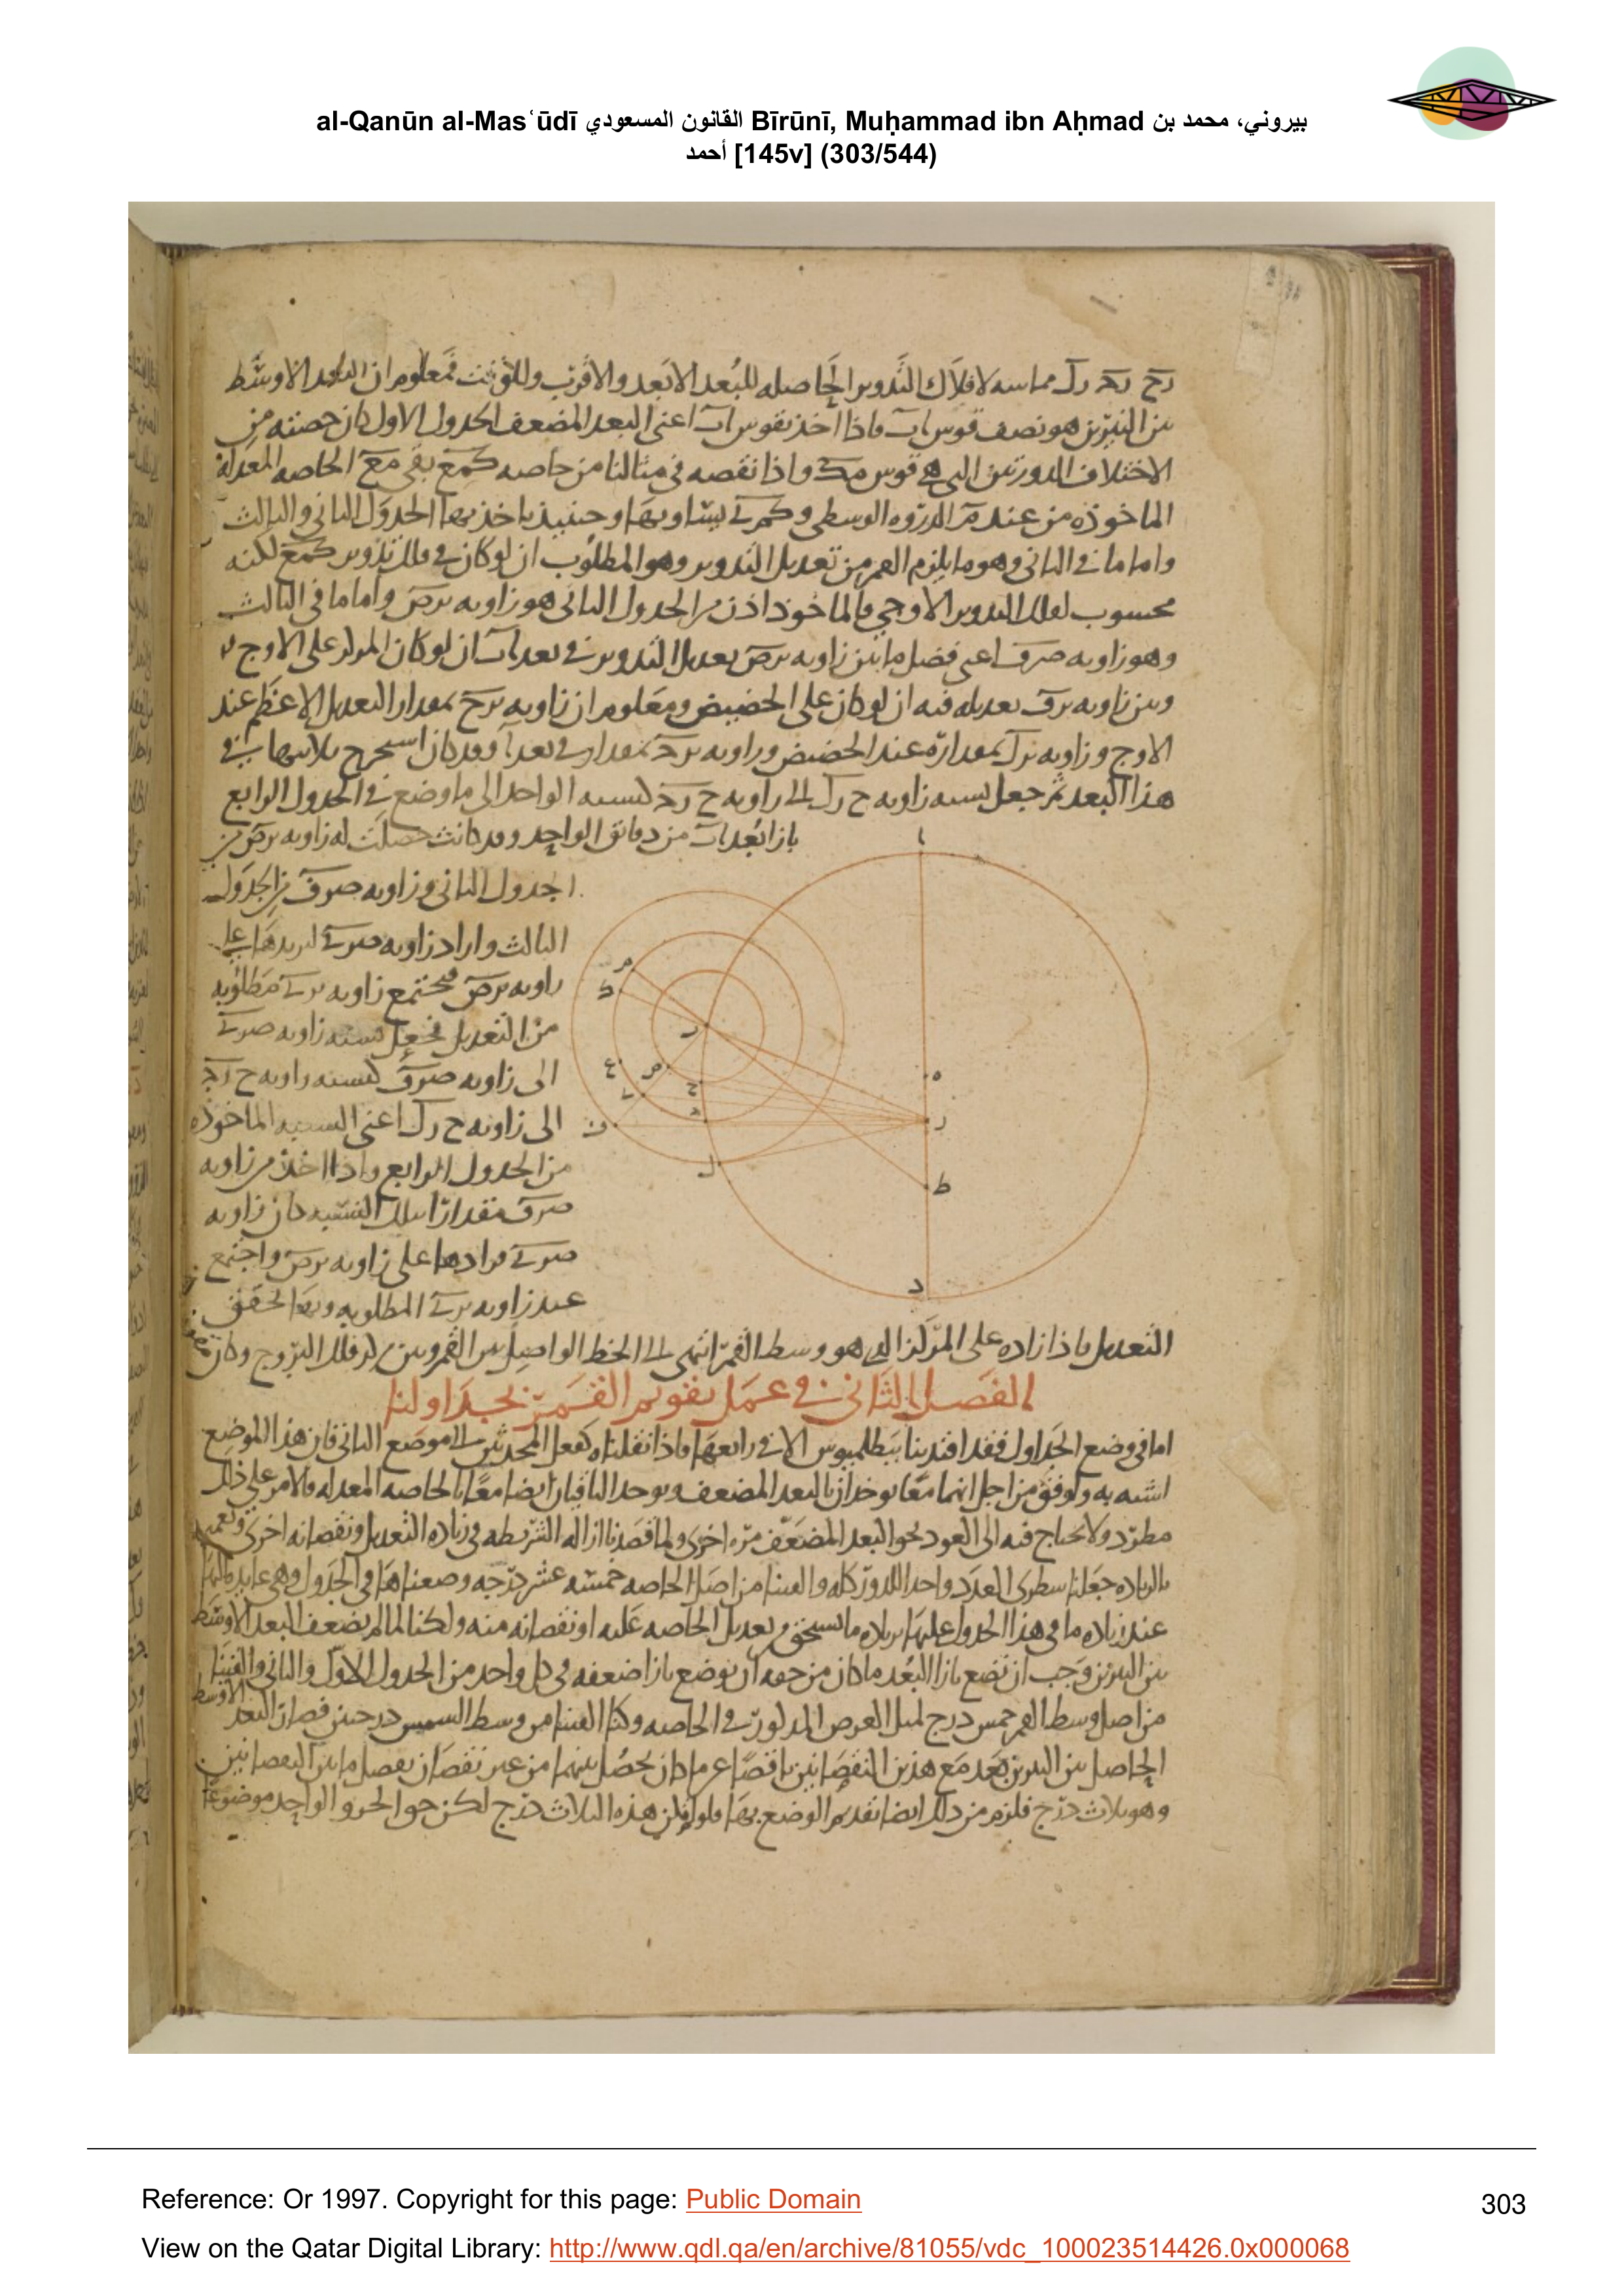 al-Qanūn al-Masʿūdī القانون المسعودي Bīrūnī, Muḥammad ibn Aḥmad بيروني، محمد بن
أحمد [145v] (303/544)
مماسه لافلاك التدوير الحاصله للبعد الابعد والاقرب فمعلوم ان البعد الاوسط
بين النيرين هو نصف قوس اب فاذا اخذ بقوس اب اعنى البعد المضعف الجدول الاول كان حصته من
الاختلاف التى هى قوس واذا نقصه فى مثالنا من خاصه بقى الخاصه المعدله
الماخوذه من عند الذروه الوسطى وحينيذ ياخذ بها الجدول الثانى والثالث
واما ما فى الثانى وهو ما يلزم القمر من تعديل التدوير وهو المطلوب ان لو كان فى فلك تدوير لكنه
محسوب لفلك التدوير الاوجى فالماخوذ اذن من الجدول الثانى هو زاويه واما ما فى الثالث
وهو زاويه اعنى فضل ما بين زاويه تعديل التدوير فى بعد اب ان لو كان المركز على الاوج
وبين زاويه تعديله فيه ان لو كان على الحضيض ومعلوم ان زاويه بمقدار التعديل الاعظم عند
الاوج وزاويه بمقداره عند الحضيض وزاويه بمقداره فى بعد وقد كان استخرج ثلاثتها فى
هذا البعد ثم جعل نسبه زاويه الى زاويه كنسبه الواحد الى ما وضع فى الجدول الرابع
بازا بعد اب من دقائق الواحد وقد كانت حصلت له زاويه من
الجدول الثانى وزاويه من الجدول
الثالث واراد زاويه ليزيدها على
زاويه فيجتمع زاويه مطلوبه
من التعديل فجعل نسبه زاويه
الى زاويه كنسبه زاويه
الى زاويه اعنى النسبه الماخوذه
من الجدول الرابع واذا اخذ من زاويه
مقدارا بتلك النسبه كان زاويه
فزادها على زاويه واجتمع
عنده زاويه المطلوبه وبها تحقق
التعديل فاذا زاده على المركز الذى هو وسط القمر انتهى الى الخط الواصل بين القمر وبين مركز فلك البروج وكان
الفصل الثانى فى عمل تقويم القمر بجداولنا
اما فى وضع الجداول فقد اقتدينا ببطلميوس الا فى رابعها فاذا نقلناه كفعل المحدثين الى موضع الثانى فان هذا الموضع
اشبه به واوفق من اجل انهما معا يوخذان بالبعد المضعف ويوخذ الباقيان ايضا معا بالخاصه المعدله فالامر على ذلك
مطرد ولا يحتاج فيه الى العود نحو البعد المضعف مره اخرى ولما قصدنا ازاله الشريطه فى زياده التعديل ونقصانه اخرى
بالزياده جعلنا سطرى العدد واحدا للدور كله والقينا من اصل الخاصه خمسه عشر درجه وضعناها فى الجدول وهى عايده اليها
عند زياده ما فى هذا الجدول عليها بزياده ما يستحق من تعديل الخاصه عليه او نقصانه منه ولكنا لما لم نضعف البعد الاوسط
بين النيرين وجب ان نضع بازا البعد ما كان من حقه ان يوضع بازا ضعفه فى كل واحد من الجدول الاول والثانى والقينا
من اصل وسط القمر خمس درج لمثل الغرض المذكور فى الخاصه وكنا القينا من وسط الشمس درجتين فصار البعد الاوسط
الحاصل بين النيرين بعد مع هذين النقصانين ناقصا عما كان يحصل بينهما من غير نقصان بفضل ما بين النقصانين
وهو ثلاث درج فلزم من ذلك ايضا تقديم الوضع بها هذه الثلاث درج لكن الواحد موضوعا
Reference: Or 1997. Copyright for this page: Public Domain
303
View on the Qatar Digital Library: http://www.qdl.qa/en/archive/81055/vdc_100023514426.0x000068